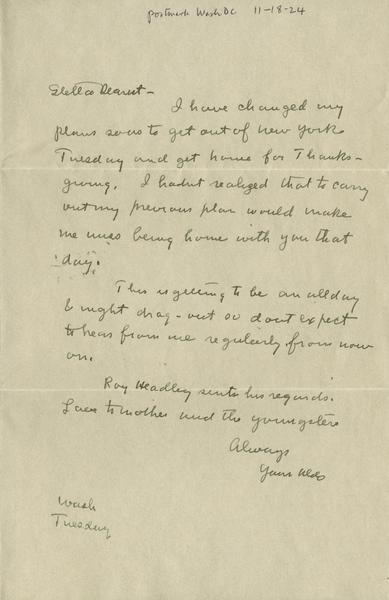 postmark Wash DC 11-18-24
Estella Dearest -
I have changed my
plans so as to get out of New York
Tuesday and get home for Thanks-
giving. I hadn't realized that to carry
out my previous plan would make
me miss being home with you that
day.
This is going to be an all day
& night drag-out so don't expect
to hear from me regularly from now
on.
Roy Headley sends his regards.
Love to mother and the youngsters
Always
Yours Aldo
Wash
Tuesday